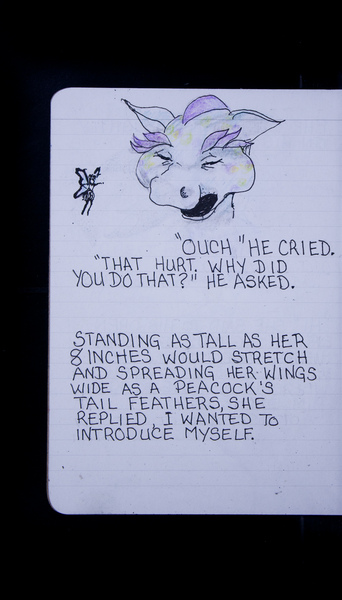 "OUCH" HE CRIED.
"THAT HURT. WHY DID
YOU DO THAT?" HE ASKED.
STANDING AS TALL AS HER
8 INCHES WOULD STRETCH
AND SPREADING HER WINGS
WIDE AS A PEACOCK'S
TAIL FEATHERS, SHE
REPLIED, I WANTED TO
INTRODUCE MYSELF.